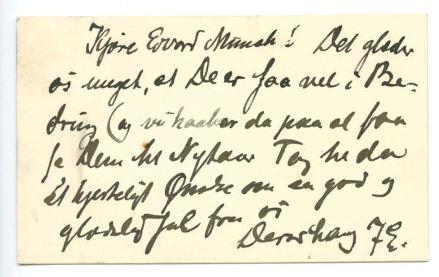 Kjære Edvard Munch! Det glæder
os meget, at De er saa vel i Be-
dring (og vi haaber da paa at faa
se Dem til Nytaar Tag da
et hjerteligt Ønske om en god og
glædelig Jul fra os
Deres